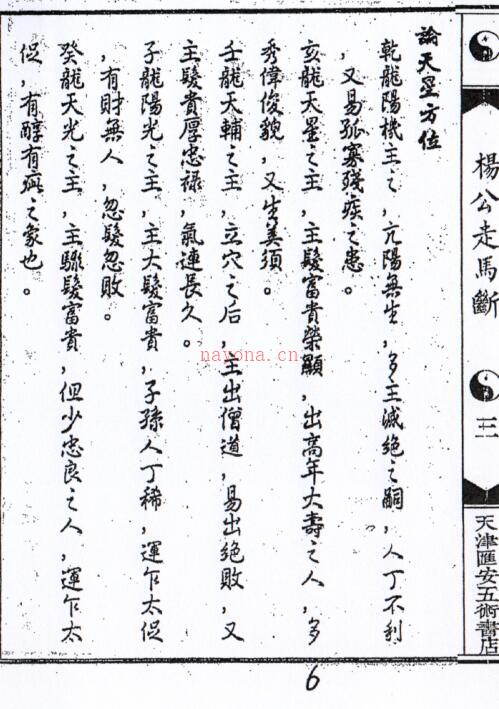 楊公走馬斷
三
天津匯安五術書店
論天星方位
乾龍陽機主之,亢陽無生,多主滅絕之嗣,人丁不利
,又易孤寡殘疾之患。
亥龍天星之主,主髮富貴榮顯,出高年大壽之人,多
秀偉俊貌,又生美須。
壬龍天輔之主,立穴之后,主出僧道,易出絕敗,又
主髮貴厚忠祿,氣連長久。
子龍陽光之主,主大髮富貴,子孫人丁稀,運乍太促
,有財無人,忽髮忽敗。
癸龍天光之主,主驟髮富貴,但少忠良之人,運乍太
促,有醇有疵之家也。
nayona.cn
6